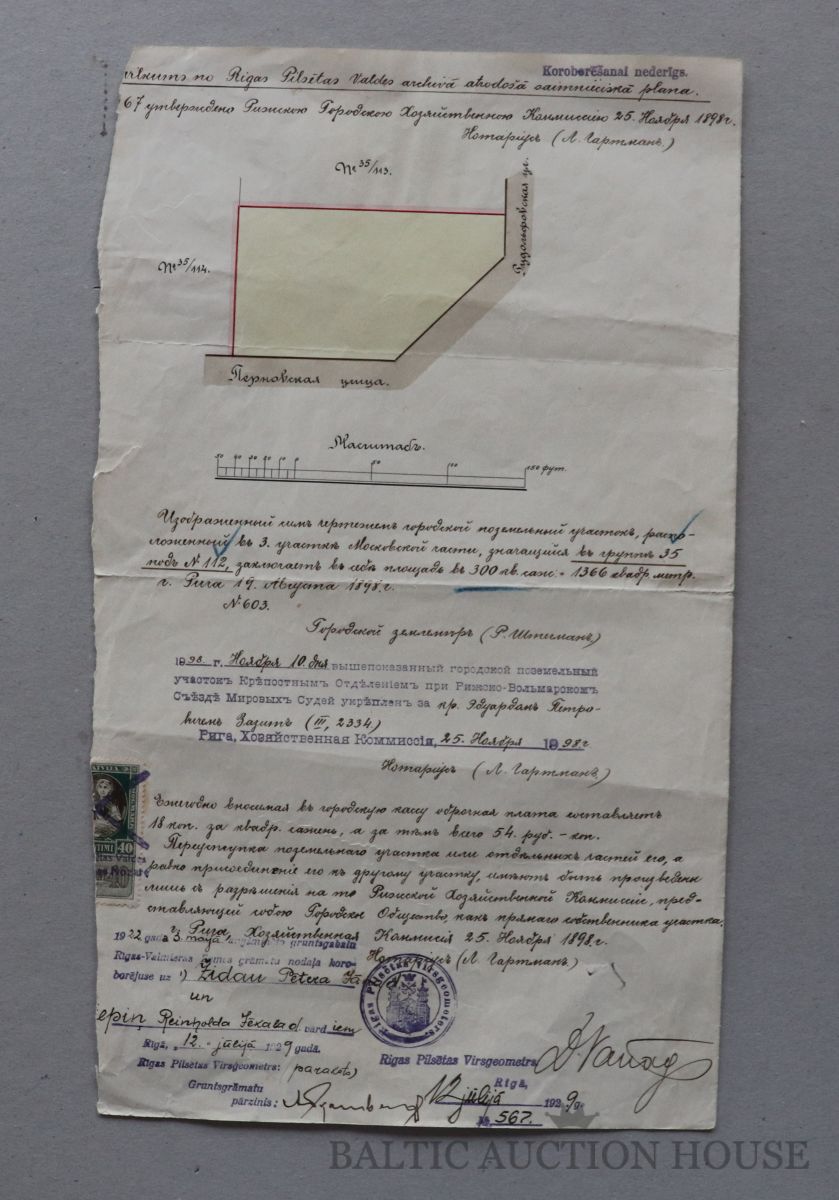 Koroborēšanai nederīgs.
no Rīgas Pilsētas Valdes archivā atrodošā saimnieciskā plana.
67 утверждено Рижскою Городскою Хозяйственною Коммиссіею 25. Ноября 1898 г.
Нотаріусъ (Л. Гартманъ.)
№ 35/113.
Рудольфовская ул.
№ 35/114.
Перновская улица.
Масштабъ.
50 40 30 20 10 0 50 100 150 фут.
Изображенный симъ чертежемъ городской поземельный участокъ, распо-
ложенный въ 3. участкѣ Московской части, значащійся въ группѣ 35
подъ № 112, заключаетъ въ себѣ площадь въ 300 кв. саж. = 1366 квадр. метр.
г. Рига 19. Августа 1898 г.
№ 603.
Городской землемѣръ (Р. Штегманъ)
1898. г. Ноября 10. дня вышепоказанный городской поземельный
участокъ Крѣпостнымъ Отдѣленіемъ при Рижско-Вольмарскомъ
Съѣздѣ Мировыхъ Судей укрѣпленъ за кр. Эдуардомъ Петро-
вичемъ Зазитъ (III, 2334)
Рига, Хозяйственная Коммиссія, 25. Ноября 1898 г
Нотаріусъ (Л. Гартманъ)
LATVIJA
40
Ежегодно вносимая въ городскую кассу оброчная плата составляетъ
18 коп. за квадр. сажень, а за тѣмъ всего 54. руб. - коп.
Переуступка поземельнаго участка или отдѣльныхъ частей его, а
равно присоединеніе его къ другому участку, имѣютъ быть произведены
лишь съ разрѣшенія на то Рижской Хозяйственной Коммиссіи, пред-
ставляющей собою Городское Общество, какъ прямаго собственника участка.
г. Рига, Хозяйственная Коммиссія 25. Ноября 1898 г.
Нотаріусъ (Л. Гартманъ)
1922 gada 3. maijā gruntsgabalu
Rīgas-Valmieras grāmatu nodaļa koro-
borējuse uz 1) Zīdau Pētera
un
Reinholda d. vārdiem
Rīgā, "12." jūlijā 1929 gadā.
Rīgas Pilsētas Virsgeometrs: (paraksts)
Gruntsgrāmatu
pārzinis:
Rīgas Pilsētas Virsgeometrs.
Rīgas Pilsētas Virsgeometrs
Rīgā,
12 jūlijā 1929 g.
№ 567.
BALTIC AUCTION HOUSE